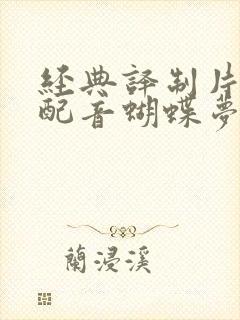 經典譯制片
配音蝴蝶夢
蘭浸溪